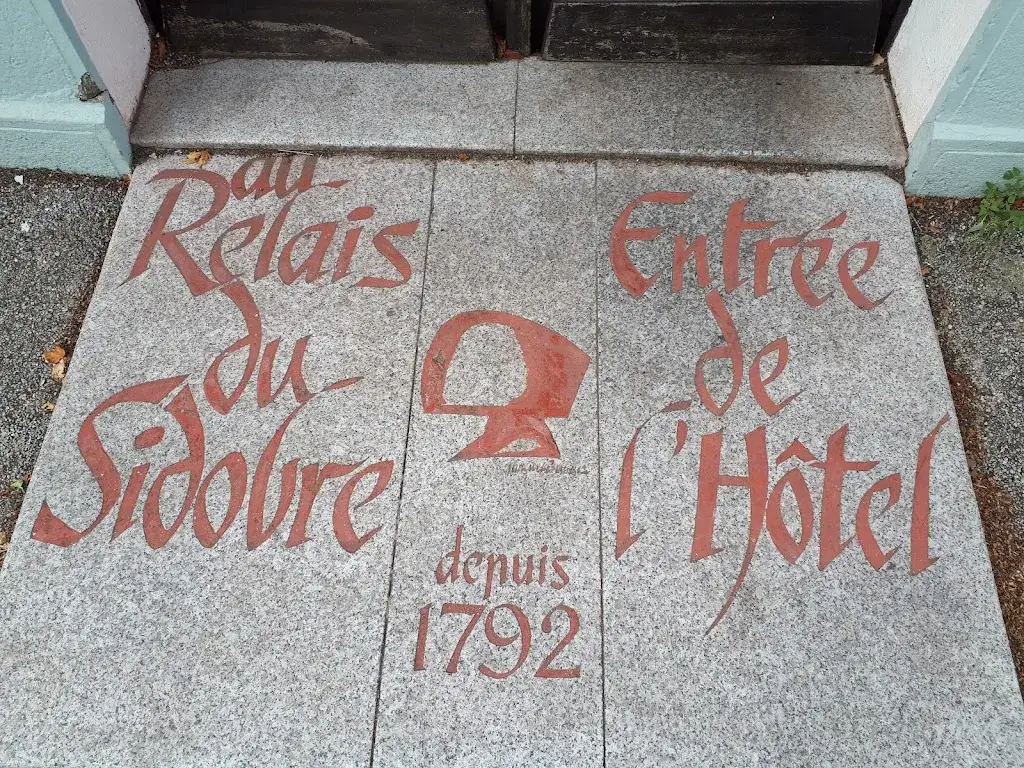 au
Relais
du
Sidobre
depuis
1792
Entrée
de
l'Hôtel